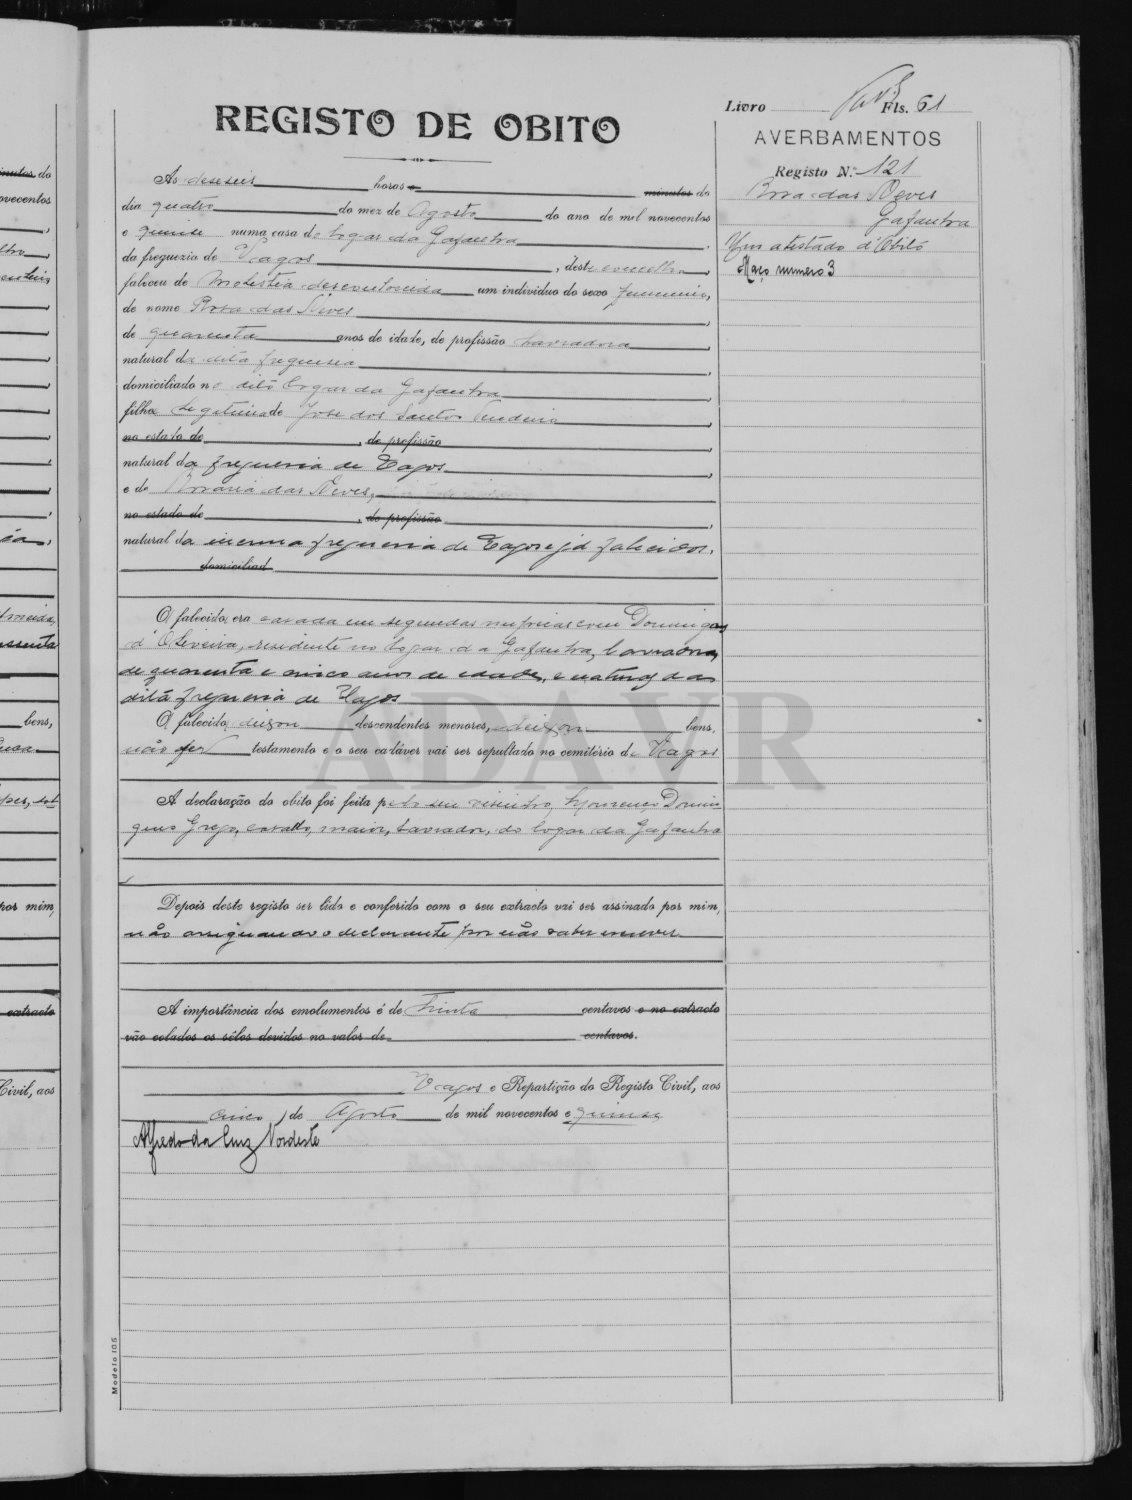 REGISTO DE OBITO
Livro Fls. 61
AVERBAMENTOS
Registo N.º 121
Rosa das Neves
Gafanha
Um atestado d'obito
Março numero 3
As deseseis horas e minutos do
dia quatro do mez de Agosto do ano de mil novecentos
e quinse numa casa do logar da Gafanha,
da freguezia de Vagos, deste concelho,
faleceu de molestia desconhecida um individuo do sexo femenino,
de nome Rosa das Neves,
de quarenta anos de idade, de profissão lavradora,
natural da dita freguesia,
domiciliado no dito logar da Gafanha,
filha legitima de José dos Santos,
no estado de , de profissão
natural da freguesia de Vagos,
e de Maria das Neves,
no estado de , de profissão ,
natural da mesma freguesia de Vagos e já falecidos.
domiciliad
O falecida era casada em segundas nupcias com Domingos
d'Oliveira, residente no logar da Gafanha, lavrador,
de quarenta e cinco anos de edade, e natural da
dita freguesia de Vagos
O falecida deixou descendentes menores, deixou bens,
não fez testamento e o seu cadáver vai ser sepultado no cemitério de Vagos
A declaração do obito foi feita pelo seu visinho, Lourenço Domin-
gues Grego, casado, maior, lavrador, do logar da Gafanha
Depois deste registo ser lido e conferido com o seu extracto vai ser assinado por mim,
não assignando o declarante por não saber escrever.
A importância dos emolumentos é de Trinta centavos e no extracto
vão colados os sêlos devidos no valor de centavos.
Vagos e Repartição do Registo Civil, aos
cinco de Agosto de mil novecentos e quinse
Alfredo da Cruz Nordeste
Modelo 105
ADAVR